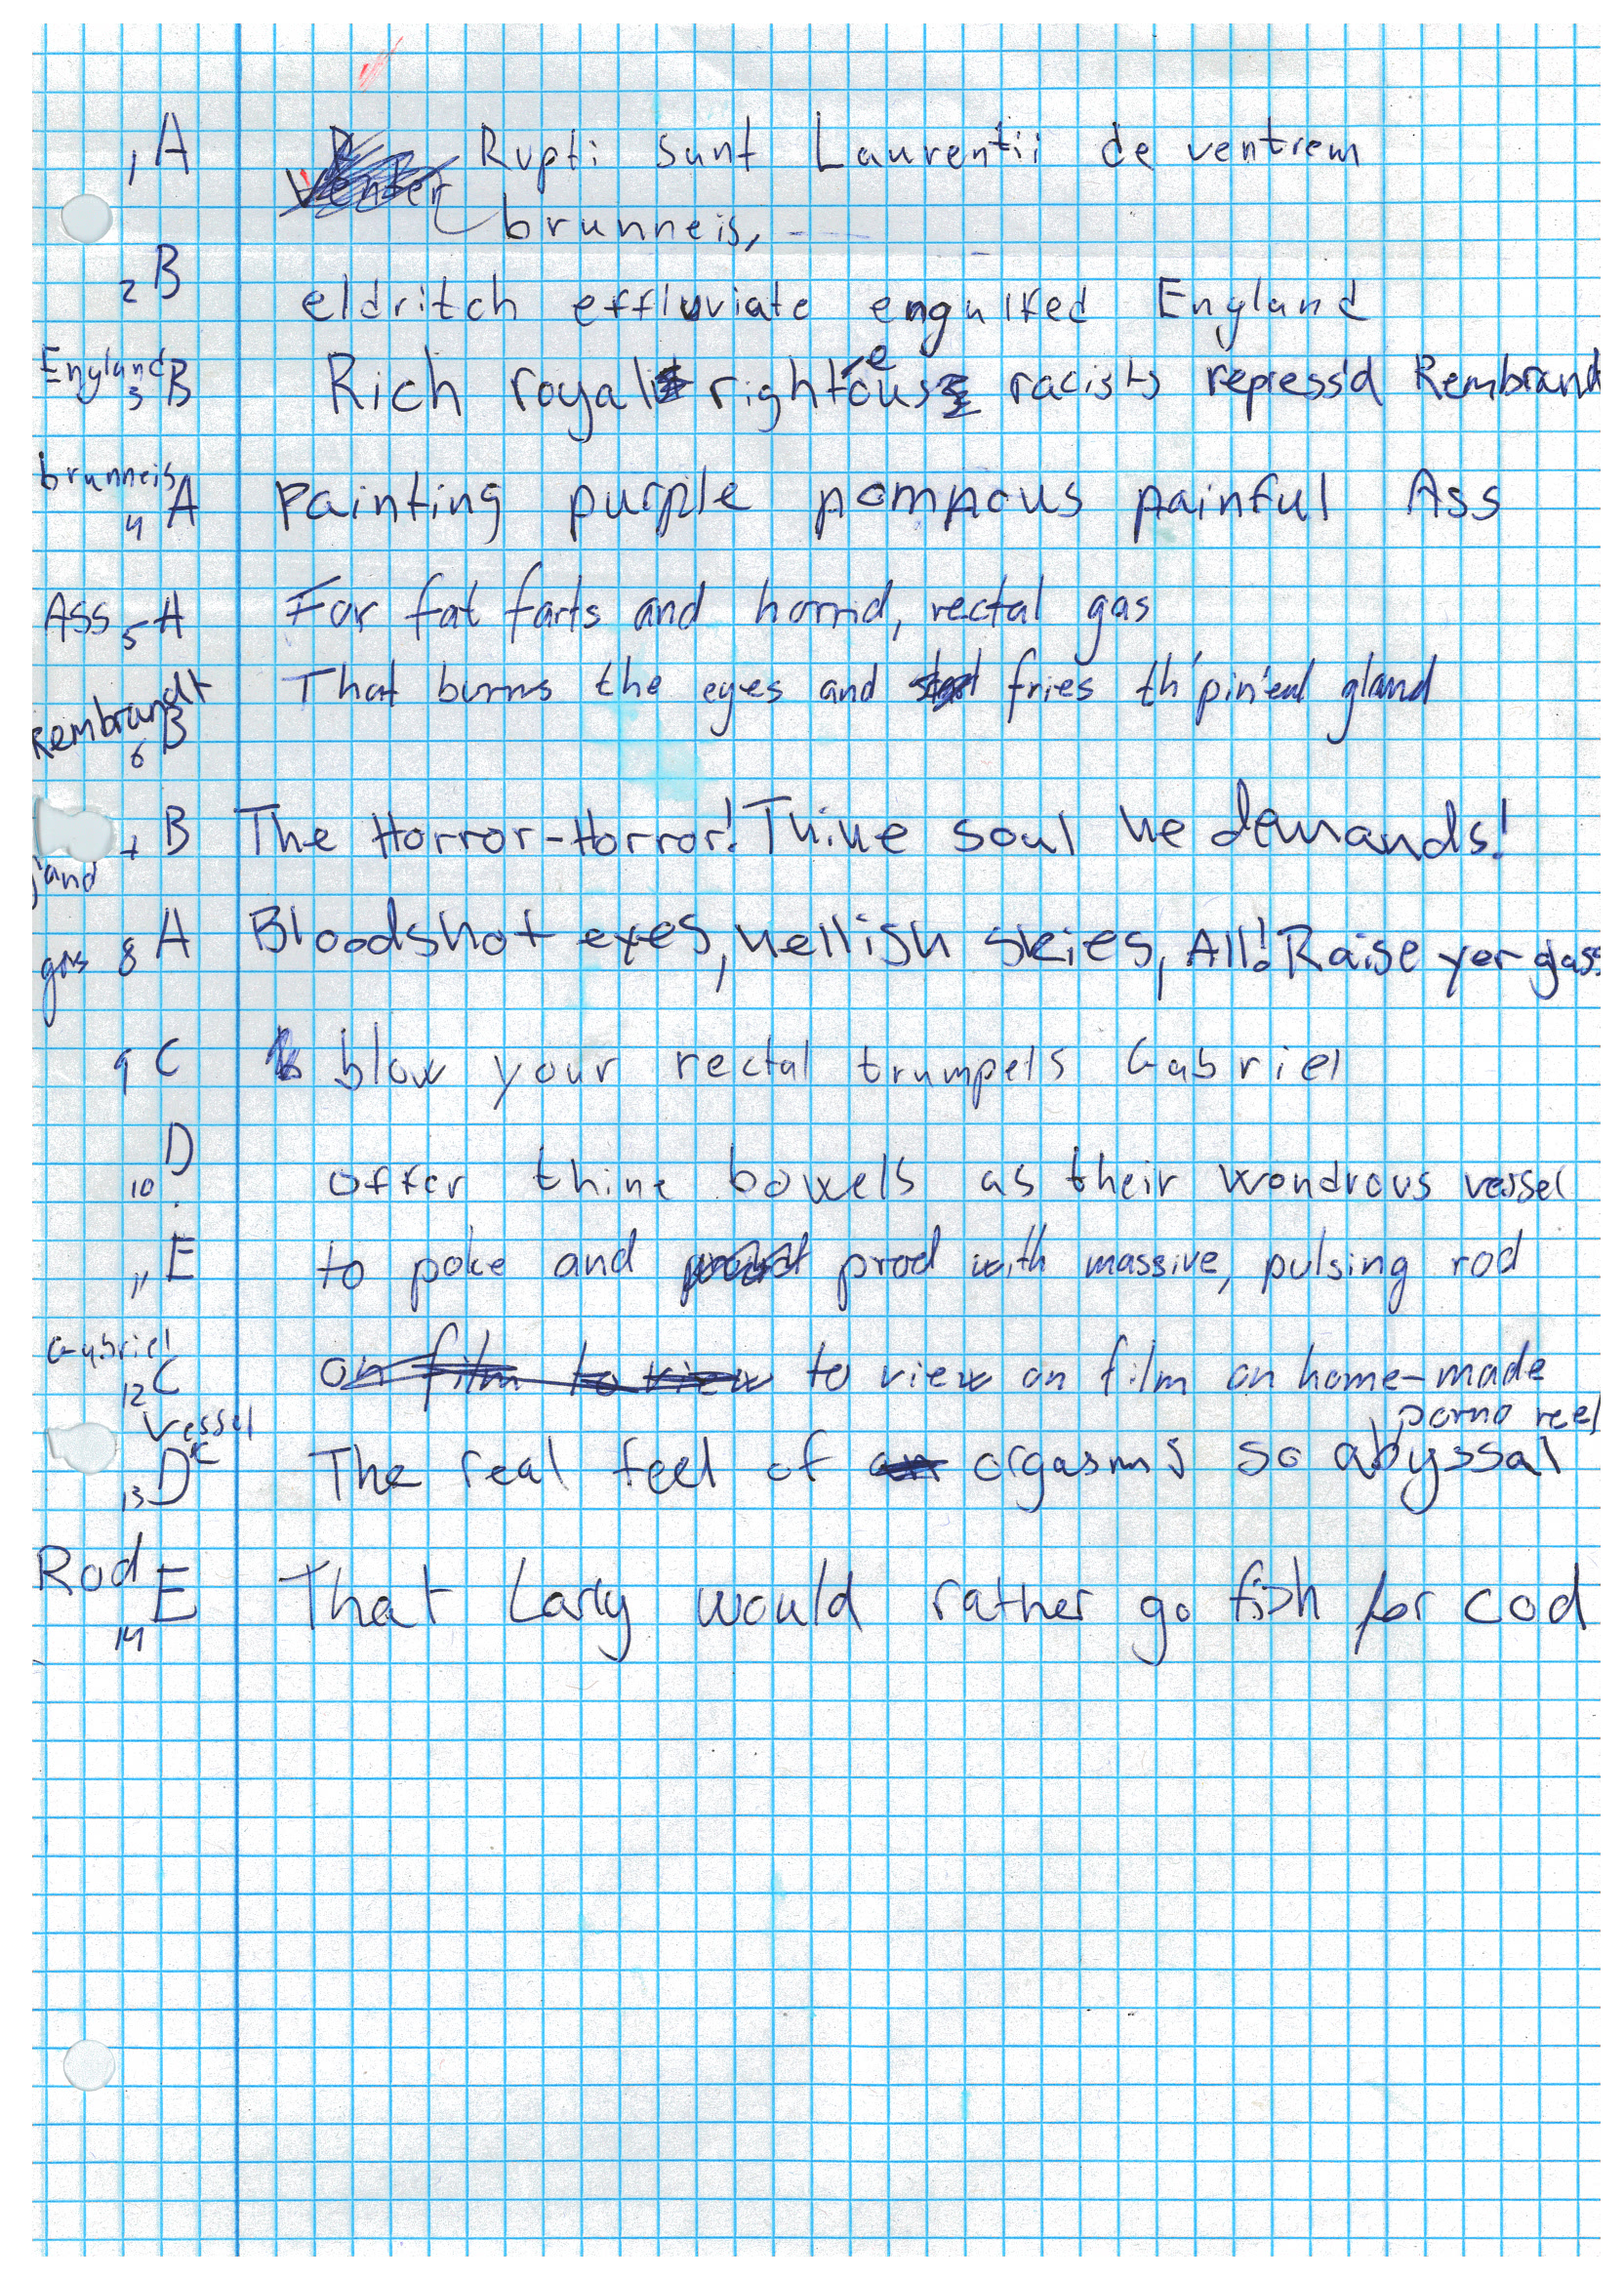 1 A Rupti sunt Laurentii de ventrem
Venter brunneis,
2 B eldritch effluviate engulfed England
England 3 B Rich royal righteous racists repress'd Rembrand
brunneis 4 A Painting purple pompous painful Ass
Ass 5 A For fat farts and horrid, rectal gas
Rembrandt 6 B That burns the eyes and fries th'pin'eal gland
7 B The Horror-Horror! Thine soul he demands!
gas 8 A Bloodshot eyes, hellish skies, All! Raise yer gass
9 C blow your rectal trumpets Gabriel
10 D offer thine bowels as their wondrous vessel
11 E to poke and prod with massive, pulsing rod
Gabriel 12 C on film to view to view on film on home-made
porno reel
vessel 13 D The real feel of an orgasm's so abyssal
Rod 14 E That Larly would rather go fish for cod